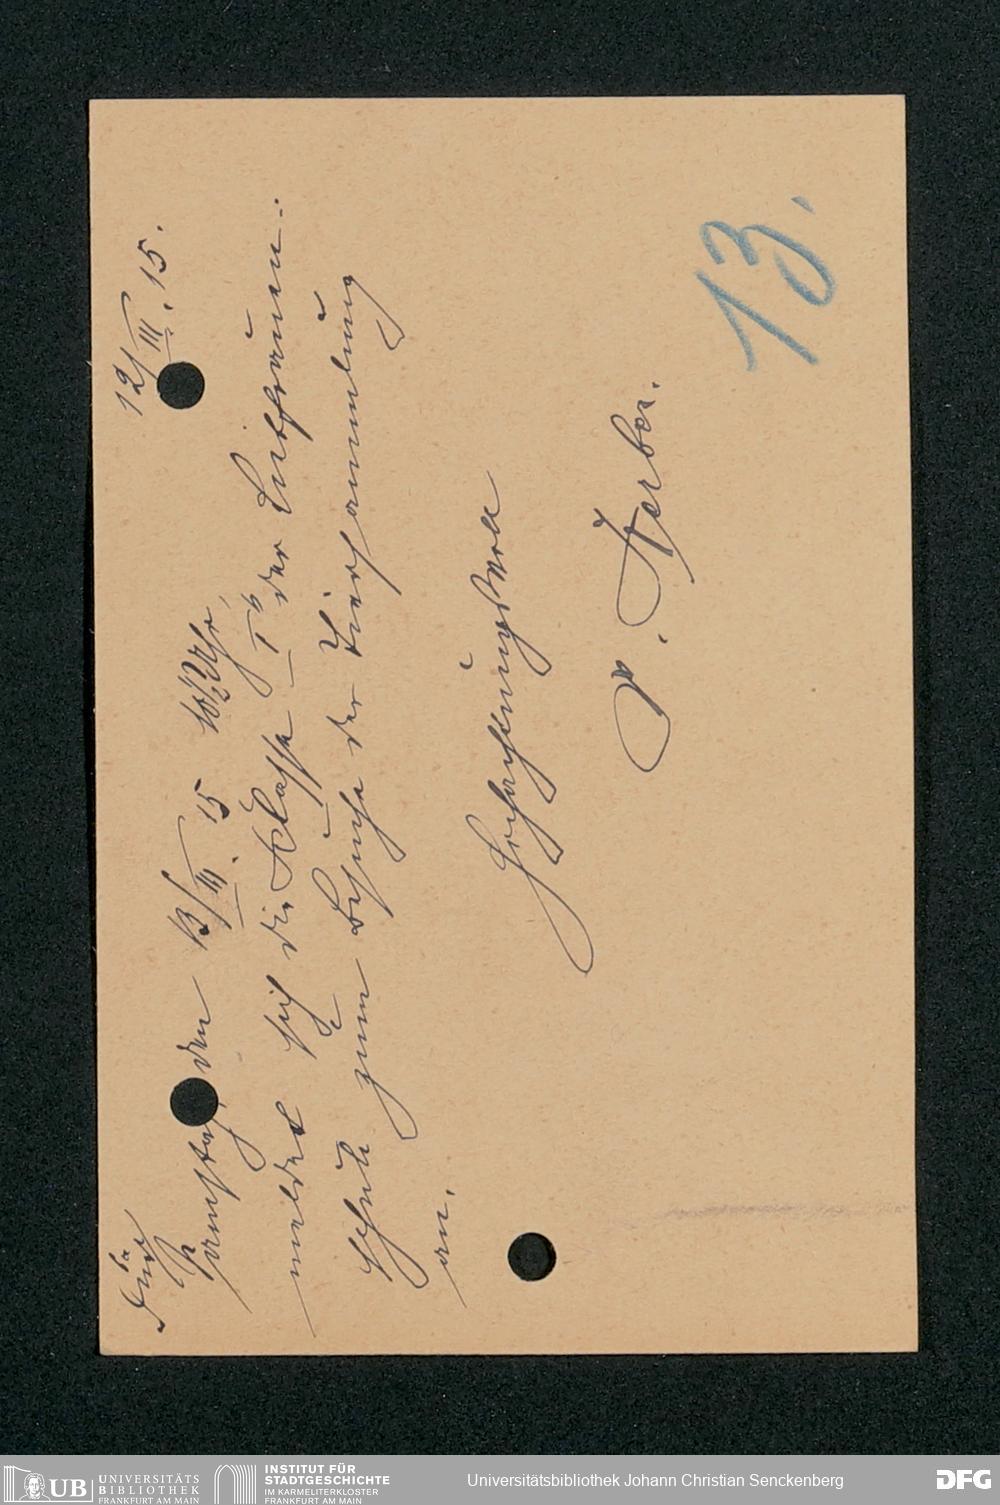 12/III. 15.
Für
Samstag, den 13/III. 15 10 1/2 Uhr,
meldet sich die Klasse I b der Liebfrauen-
schule zum Besuche der Tiersammlung
an.
Hochachtungsvoll
P. Kerber.
13.
UB UNIVERSITÄTS
BIBLIOTHEK
FRANKFURT AM MAIN
INSTITUT FÜR
STADTGESCHICHTE
IM KARMELITERKLOSTER
FRANKFURT AM MAIN
Universitätsbibliothek Johann Christian Senckenberg
DFG